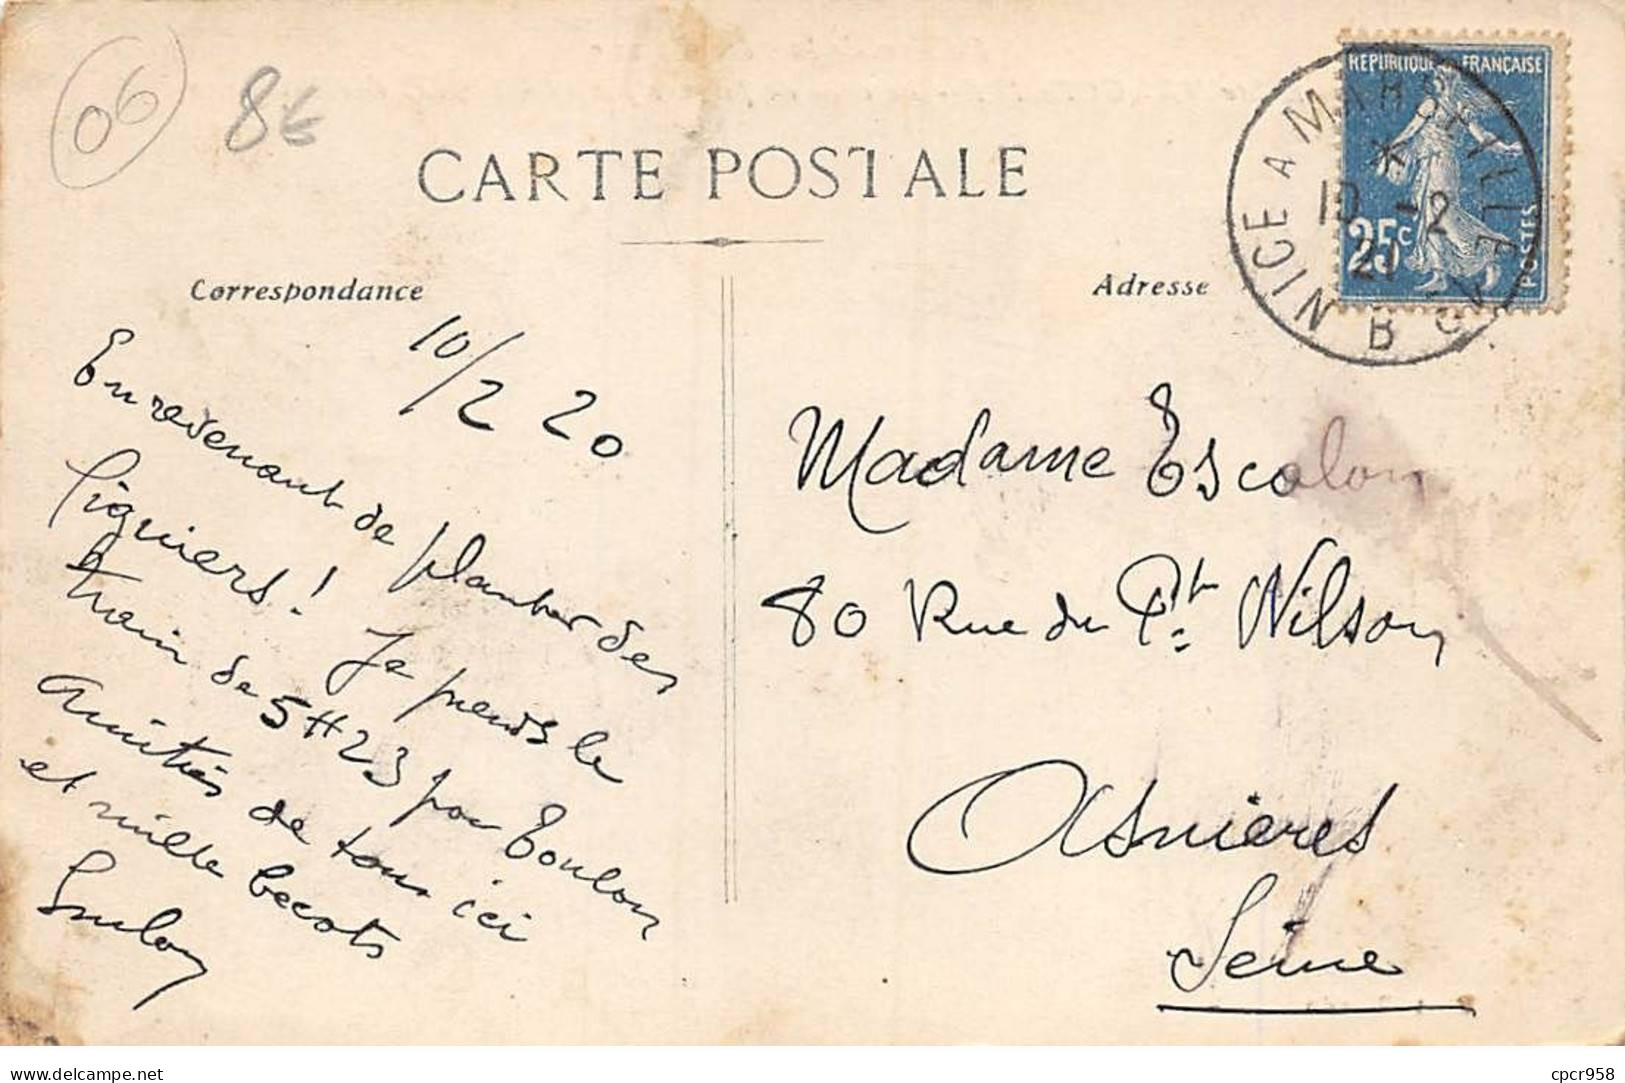 06
8€
CARTE POSTALE
Correspondance
Adresse
REPUBLIQUE FRANÇAISE
25c
POSTES
NICE A MARSEILLE
10 -2
21
B
10/2 20
En revenant de planter des
figuiers ! Je prends le
train de 5H23 pour Toulon
Amitiés de tous ici
et mille becots
Madame Escalon
80 Rue du Pt. Wilson
Asnieres
Seine
delcampe.net
cpcr958